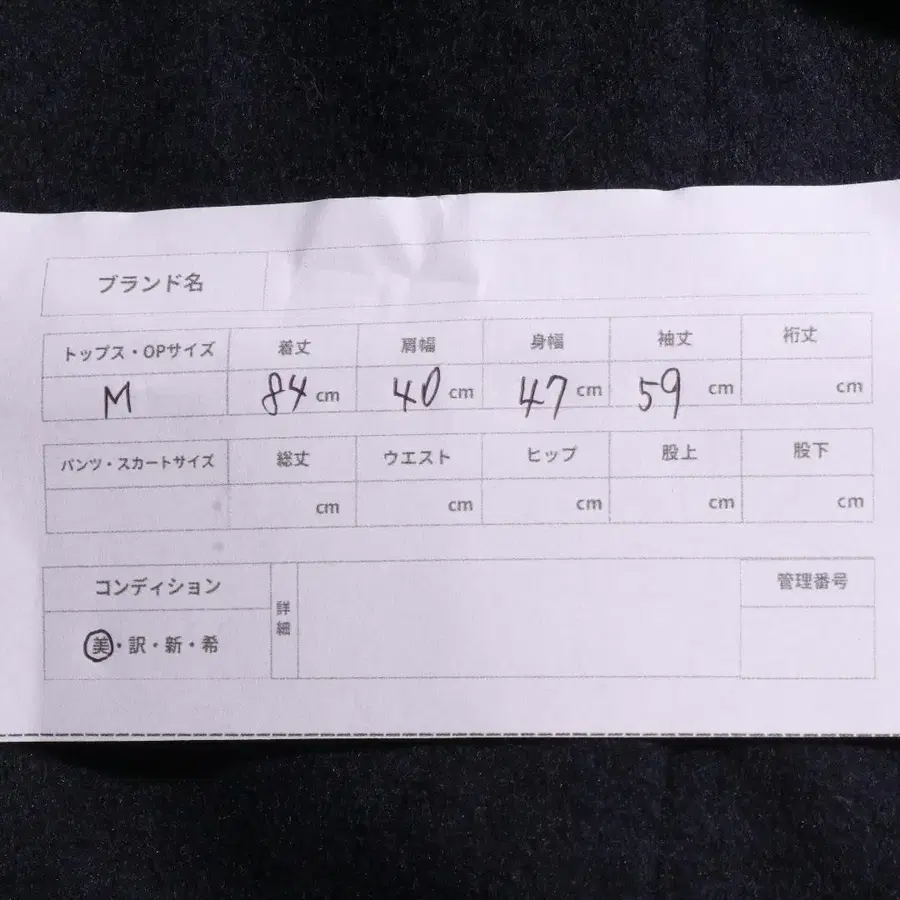 ブランド名
トップス・OPサイズ 着丈 肩幅 身幅 袖丈 裄丈
M 84 cm 40 cm 47 cm 59 cm cm
パンツ・スカートサイズ 総丈 ウエスト ヒップ 股上 股下
cm cm cm cm cm
コンディション 詳細 管理番号
美・訳・新・希